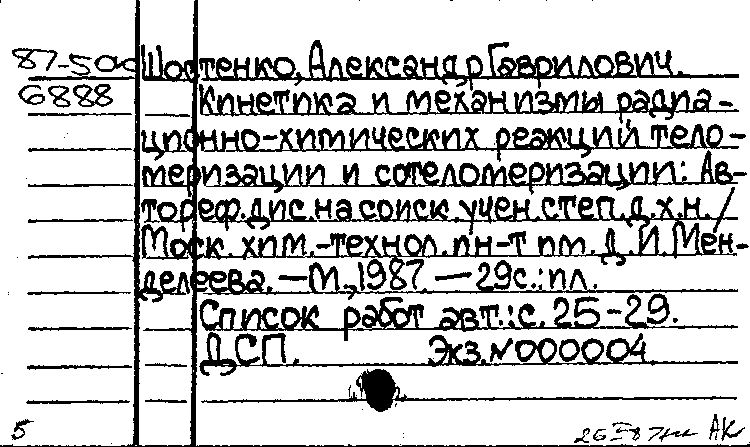 87-5дсп Шостенко, Александр Гаврилович.
6888 Кинетика и механизмы радиа-
ционно-химических реакций тело-
меризации и сотеломеризации: Ав-
тореф.дис.на соиск.учен.степ.д.х.н./
Моск.хим.-технол.ин-т им.Д.И.Мен-
делеева.—М.,1987.—29с.:ил.
Список работ авт.:с.25-29.
ДСП. Экз.N000004
5 АК